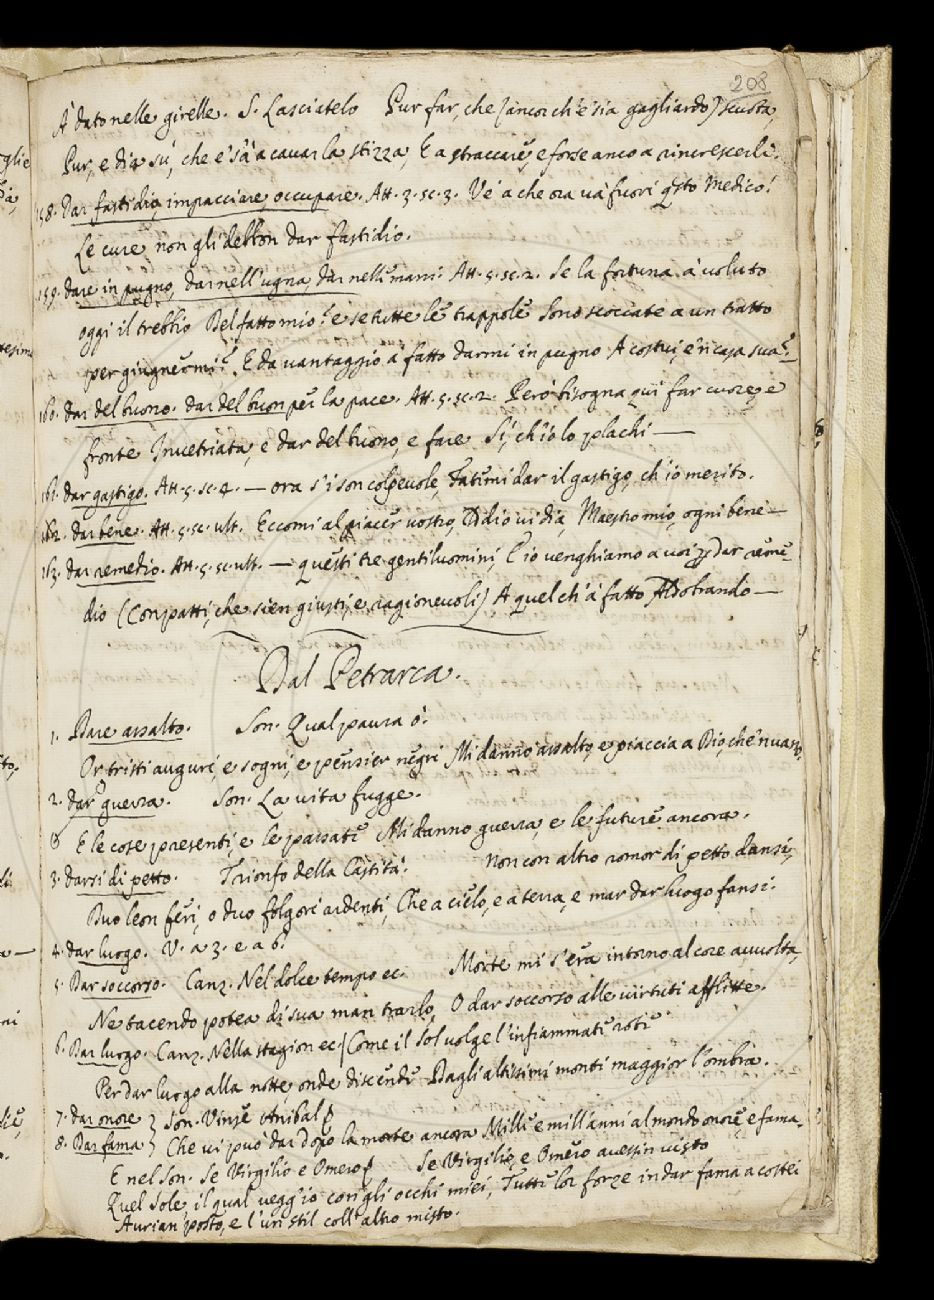 208
À dato nelle girelle. S. Lasciatelo Pur far, che (ancor ch'e' sia gagliardo) scuota,
Pur, e dia sù, che e' s'à a cavar la stizza, E a straccare, e forse anco a rincrescerli.
158. Dar fastidio, impacciare, occupare. Att. 3. sc. 3. Ve' a che ora và fuori q̃sto Medico!
Le cure non gli debbon dar fastidio.
159. dare in pugno, dar nell'ugna, dar nelle mani. Att. 5. sc. 2. Se la fortuna à voluto
oggi il trebbio Del fatto mio? e se tutte le trappole Sono scoccate a un tratto
per giugnermi? E da vantaggio à fatto darmi in pugno A costui, e'n casa sua?
160. dar del buono. dar del buon per la pace. Att. 5. sc. 2. Però bisogna quì far cuore, e
fronte Invetriata, e dar del buono, e fare Sì, ch'io lo plachi —
161. dar gastigo. Att. 5. sc. 4. — ora s'i' son colpevole, Fatemi dar il gastigo, ch'io merito.
162. dar bene. Att. 5. sc. ult. Eccomi al piacer vostro, Iddio vi dia, Maestro mio, ogni bene —
163. dar remedio. Att. 5. sc. ult. — questi tre gentiluomini, E io venghiamo a voi p dar reme-
dio (Con patti, che sien giusti, e ragionevoli) A quel ch'à fatto Aldobrando —
Dal Petrarca.
1. Dare assalto. Son. Qual paura ò.
Or tristi auguri, e sogni, e pensier negri Mi danno assalto, e piaccia a Dio, che'n vano.
2. dar guerra. Son. La vita fugge.
E le cose presenti, e le passate Mi danno guerra, e le future ancora.
3. darsi di petto. Trionfo della Castità. Non con altro romor di petto dansi,
Duo leon feri, o duo folgori ardenti, Che a cielo, e a terra, e mar dar luogo fansi.
4. dar luogo. V. a 3. e a 6.
5. Dar soccorso. Canz. Nel dolce tempo ec. Morte mi s'era intorno al core avvolta,
Ne tacendo potea di sua man trarlo, O dar soccorso alle virtuti afflitte.
6. Dar luogo. Canz. Nella stagion ec. Come il Sol volge l'infiammate rote
Per dar luogo alla notte, onde discende Dagli altissimi monti maggior l'ombra.
7. dar onore } Son. Vinse Anibal
8. Dar fama } Che vi può dar dopo la morte ancora Mille e mill'anni al mondo onore, e fama.
E nel Son. Se Virgilio e Omero Se Virgilio, e Omero avessin visto
Quel Sole, il qual vegg'io con gli occhi miei, Tutte lor forze in dar fama a costei
Avrian posto, e l'un stil coll'altro misto.